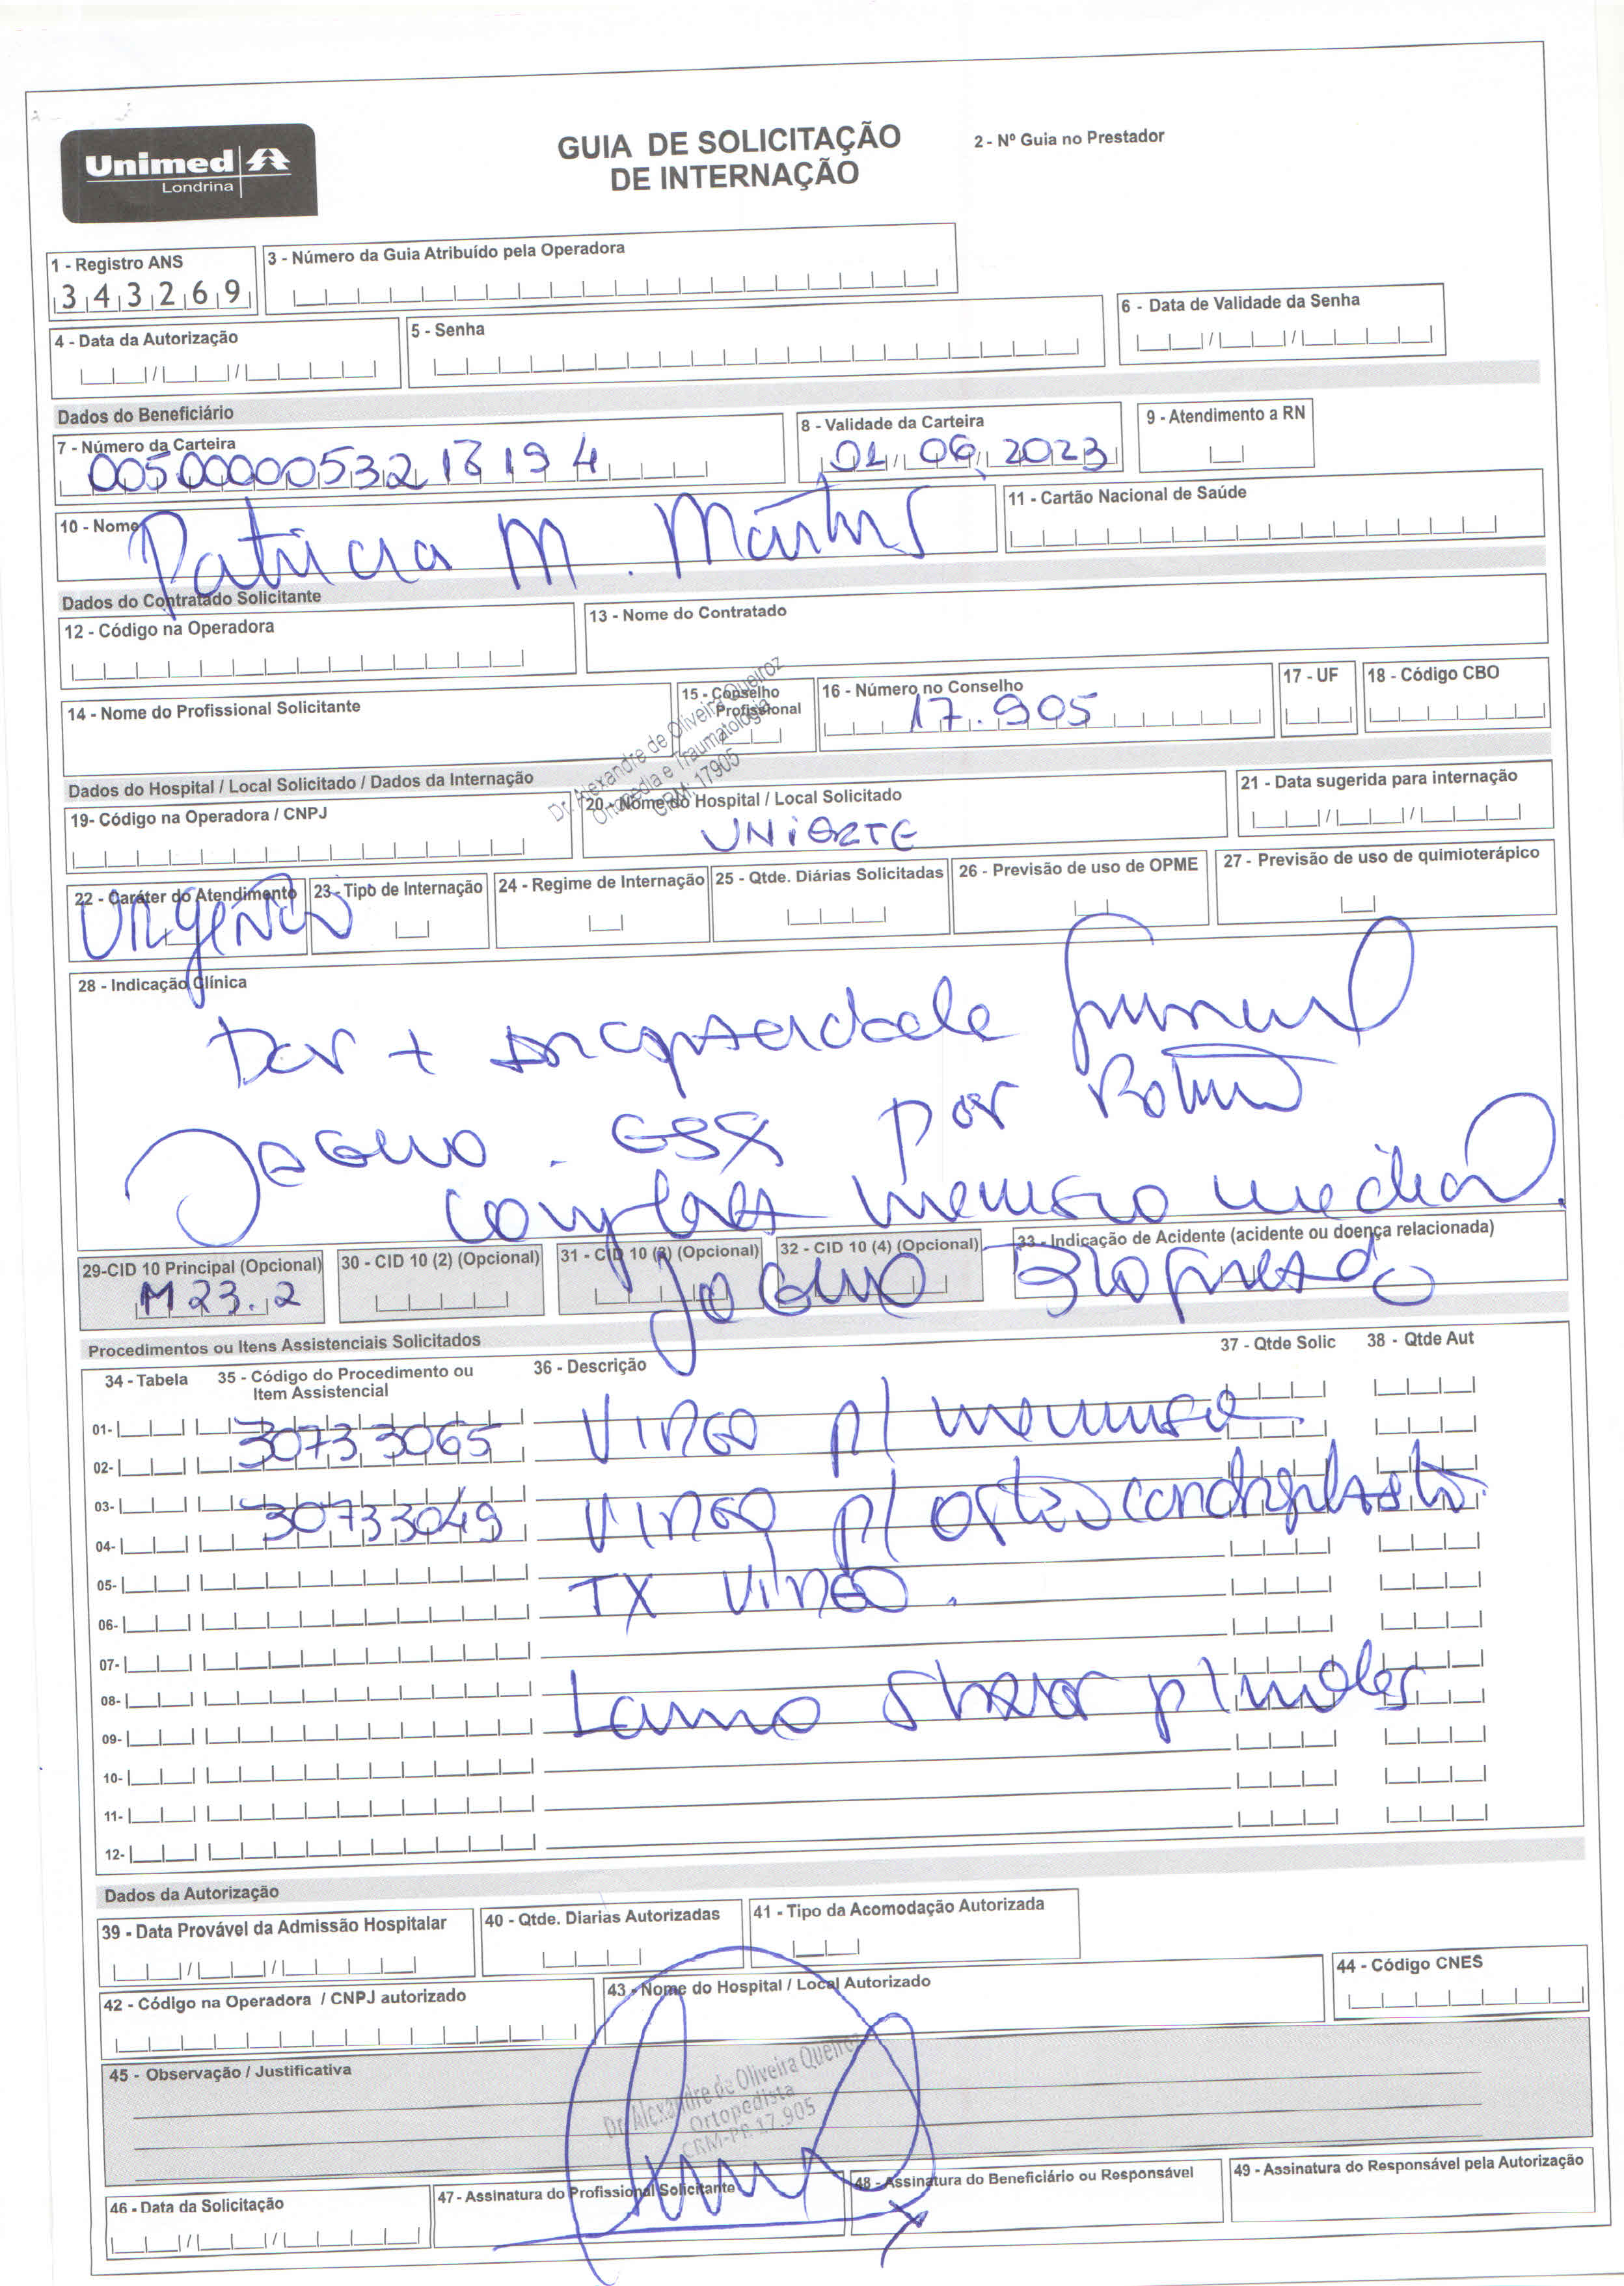 Unimed
Londrina
GUIA DE SOLICITAÇÃO
DE INTERNAÇÃO
2 - Nº Guia no Prestador
1 - Registro ANS
343269
3 - Número da Guia Atribuído pela Operadora
4 - Data da Autorização
5 - Senha
6 - Data de Validade da Senha
Dados do Beneficiário
7 - Número da Carteira
8 - Validade da Carteira
9 - Atendimento a RN
01 06 2023
10 - Nome
Patricia M. Martins
11 - Cartão Nacional de Saúde
Dados do Contratado Solicitante
12 - Código na Operadora
13 - Nome do Contratado
14 - Nome do Profissional Solicitante
15 - Conselho
Profissional
16 - Número no Conselho
17.905
17 - UF
18 - Código CBO
Dr. Alexandre de Oliveira Queiroz
Ortopedia e Traumatologia
CRM: 17905
Dados do Hospital / Local Solicitado / Dados da Internação
19- Código na Operadora / CNPJ
20 - Nome do Hospital / Local Solicitado
UNIORTE
21 - Data sugerida para internação
22 - Caráter do Atendimento
Urgência
23 - Tipo de Internação
24 - Regime de Internação
25 - Qtde. Diárias Solicitadas
26 - Previsão de uso de OPME
27 - Previsão de uso de quimioterápico
28 - Indicação Clínica
Dor + incapacidade funcional
Joelho por
menisco medial
29-CID 10 Principal (Opcional)
M23.2
30 - CID 10 (2) (Opcional)
31 - CID 10 (3) (Opcional)
32 - CID 10 (4) (Opcional)
33 - Indicação de Acidente (acidente ou doença relacionada)
Joelho
Procedimentos ou Itens Assistenciais Solicitados
34 - Tabela
35 - Código do Procedimento ou
Item Assistencial
36 - Descrição
37 - Qtde Solic
38 - Qtde Aut
01-
30733065 Video p/
02-
03-
30733049 Video p/ osteocondroplastia
04-
05-
TX Video.
06-
07-
08-
Lamina Shaver p/ moles
09-
10-
11-
12-
Dados da Autorização
39 - Data Provável da Admissão Hospitalar
40 - Qtde. Diarias Autorizadas
41 - Tipo da Acomodação Autorizada
42 - Código na Operadora / CNPJ autorizado
43 - Nome do Hospital / Local Autorizado
44 - Código CNES
45 - Observação / Justificativa
Dr. Alexandre de Oliveira Queiroz
Ortopedista
CRM-PR 17.905
46 - Data da Solicitação
47 - Assinatura do Profissional Solicitante
48 - Assinatura do Beneficiário ou Responsável
49 - Assinatura do Responsável pela Autorização